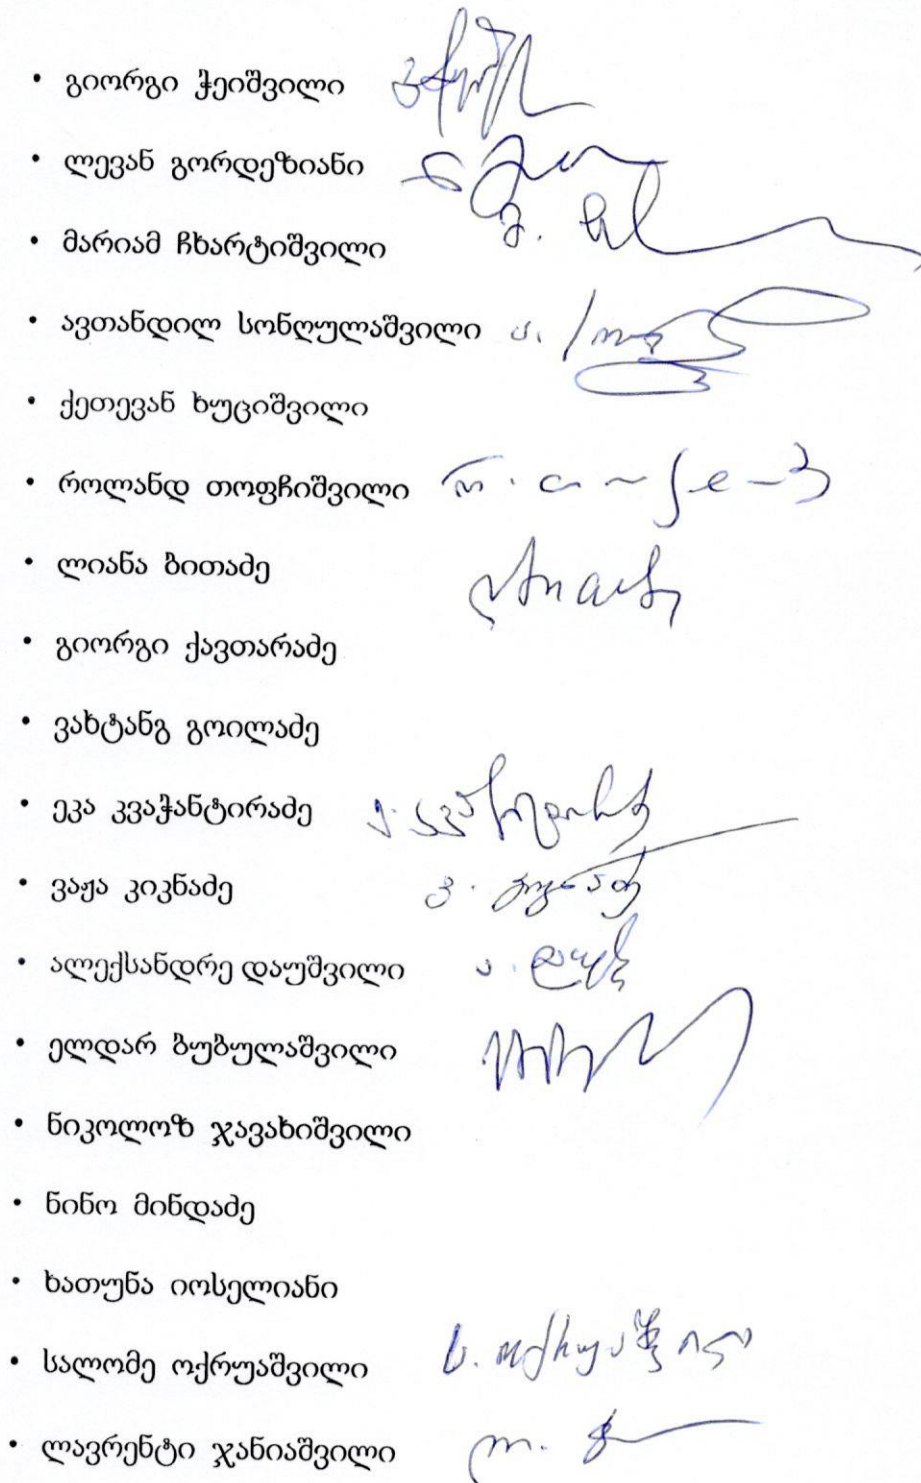 • გიორგი ჭეიშვილი
• ლევან გორდეზიანი
• მარიამ ჩხარტიშვილი
• ავთანდილ სონღულაშვილი
• ქეთევან ხუციშვილი
• როლანდ თოფჩიშვილი
• ლიანა ბითაძე
• გიორგი ქავთარაძე
• ვახტანგ გოილაძე
• ეკა კვაჭანტირაძე
• ვაჟა კიკნაძე
• ალექსანდრე დაუშვილი
• ელდარ ბუბულაშვილი
• ნიკოლოზ ჯავახიშვილი
• ნინო მინდაძე
• ხათუნა იოსელიანი
• სალომე ოქრუაშვილი
• ლავრენტი ჯანიაშვილი